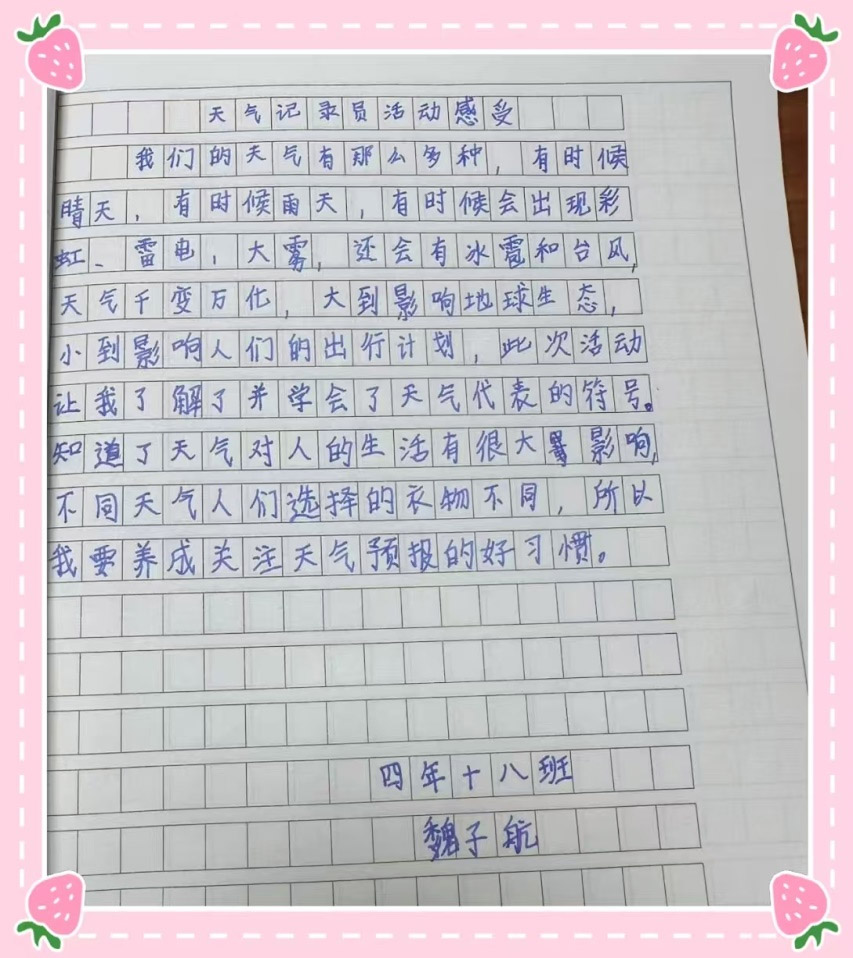 天气记录员活动感受
我们的天气有那么多种，有时候
晴天，有时候雨天，有时候会出现彩
虹、雷电，大雾，还会有冰雹和台风，
天气千变万化，大到影响地球生态，
小到影响人们的出行计划，此次活动
让我了解了并学会了天气代表的符号。
知道了天气对人的生活有很大影响，
不同天气人们选择的衣物不同，所以
我要养成关注天气预报的好习惯。
四年十八班
魏子航